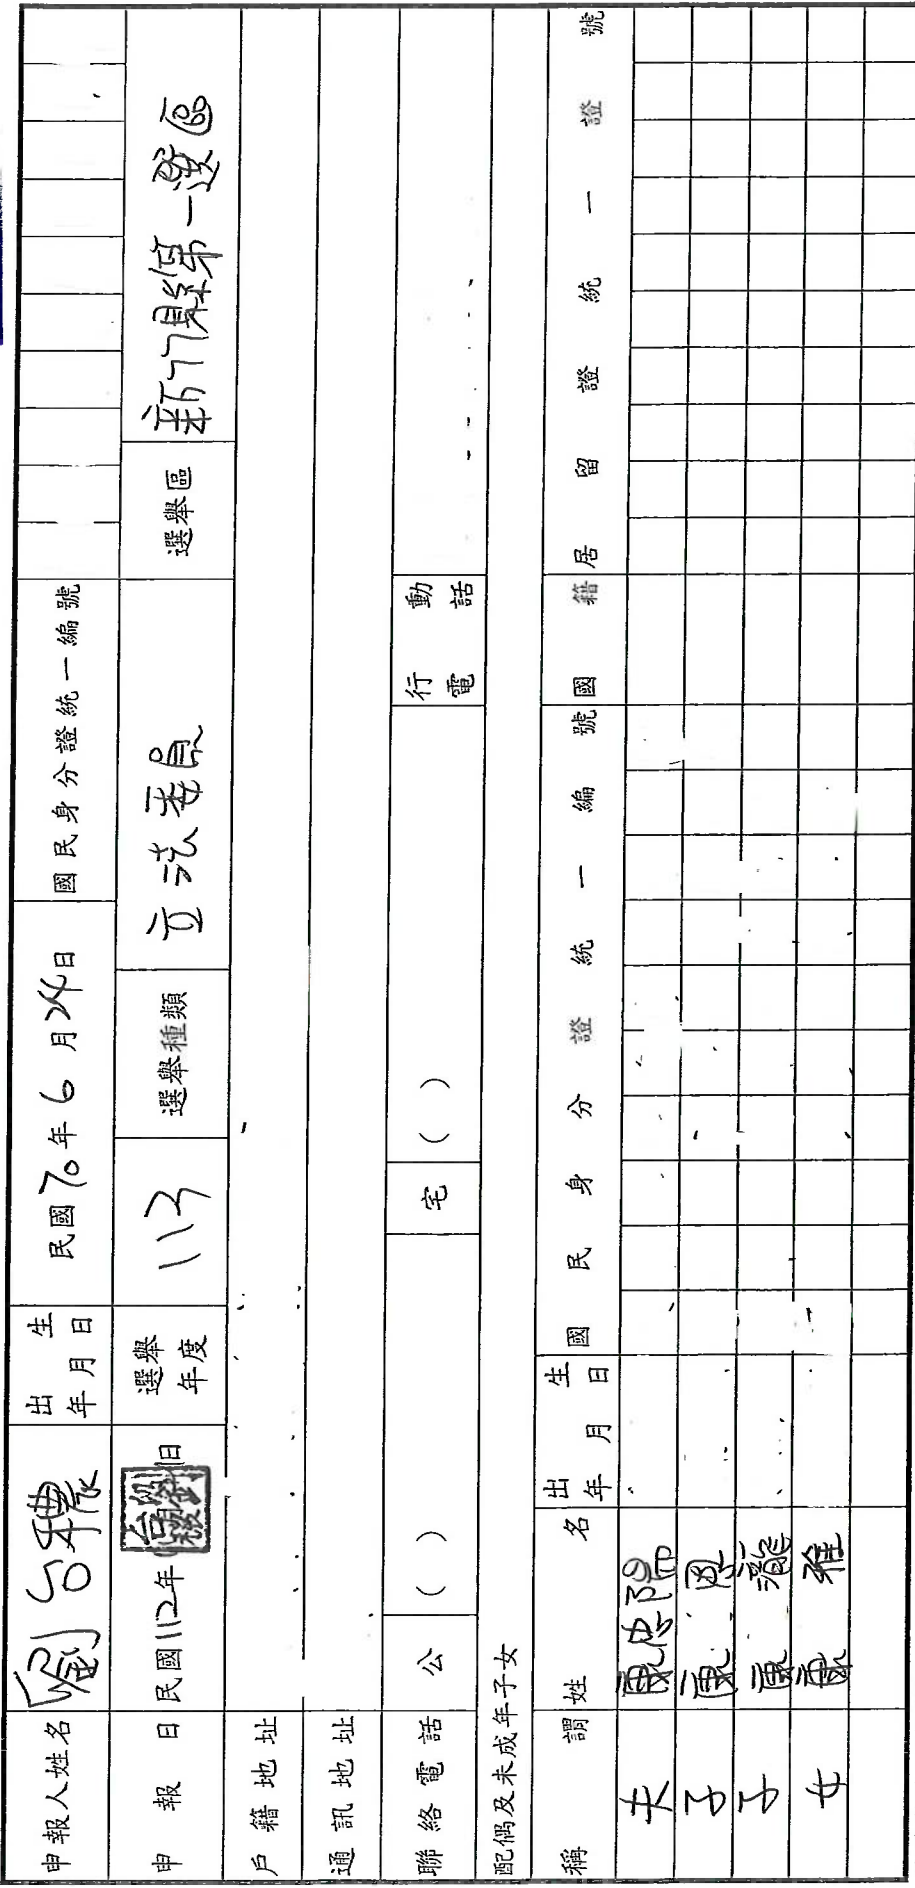 申報人姓名 劉 出生年月日 民國70年6月24日 國民身分證統一編號
申報日 民國112年 日 選舉年度 113 選舉種類 立法委員 選舉區 新竹縣第一選區
戶籍地址
通訊地址
聯絡電話 公 ( ) 宅 ( ) 行動電話
配偶及未成年子女
稱謂 姓名 出生年月日 國民身分證統一編號 國籍 居留證統一證號
夫
子
子
女